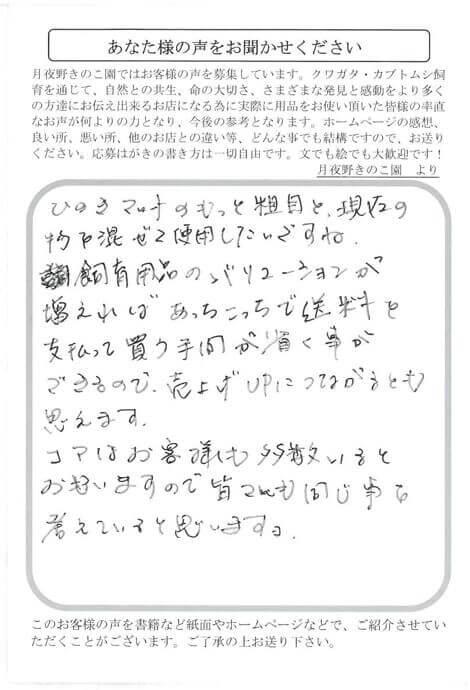 あなた様の声をお聞かせください
月夜野きのこ園ではお客様の声を募集しています。クワガタ・カブトムシ飼
育を通じて、自然との共生、命の大切さ、さまざまな発見と感動をより多く
の方達にお伝え出来るお店になる為に実際に用品をお使い頂いた皆様の率直
なお声が何よりの力となり、今後の参考となります。ホームページの感想、
良い所、悪い所、他のお店との違い等、どんな事でも結構ですので、お送り
ください。応募はがきの書き方は一切自由です。文でも絵でも大歓迎です！
月夜野きのこ園　より
ひのきマットのもっと粗目と、現在の
物を混ぜて使用したいですね。
飼育用品のバリエーションが
増えればあっちこっちで送料を
支払って買う手間が省く事が
できるので、売上げUPにつながるとも
思えます。
コアなお客様も多数いると
お思いますので皆さんも同じ事を
考えていると思いますよ。
このお客様の声を書籍など紙面やホームページなどで、ご紹介させてい
ただくことがございます。ご了承の上お送り下さい。